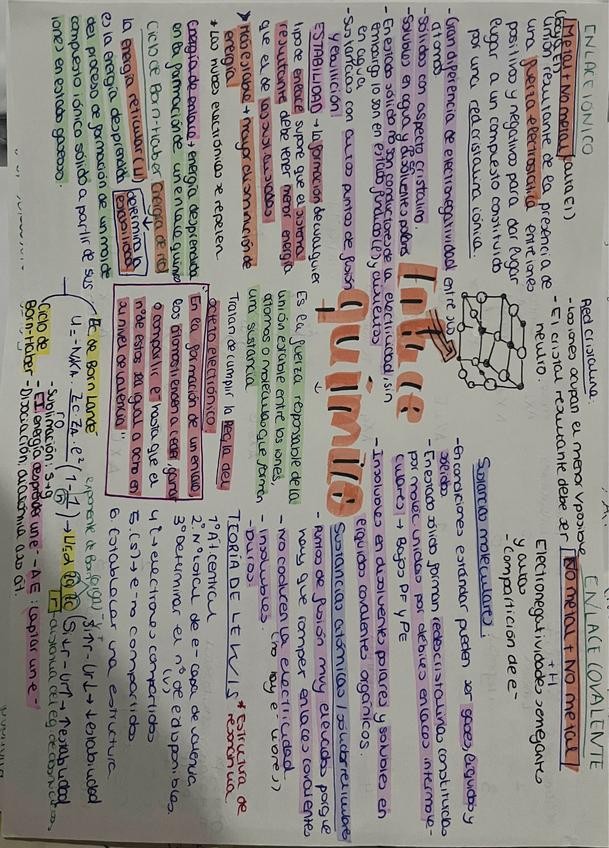 ENLACE IÓNICO
Metal + No metal (para EI)
(baja EI)
unión resultante de la presencia de
una fuerza electrostática entre iones
positivos y negativos para dar lugar
lugar a un compuesto constituido
por una red cristalina iónica.
- Gran diferencia de electronegatividad entre sus
átomos
- sólidos con aspecto cristalino.
- Solubles en agua y disolventes polares
- En estado sólido no son conductores de la electricidad, sin
embargo lo son en estado fundido (l) y disueltos
en agua
- Sustancias con altos puntos de fusión
y ebullición.
ESTABILIDAD → la formación de cualquier
tipo de enlace supone que el sistema
resultante debe tener menor energía
que el de las sustancias
Más estable → mayor disminución de
energía
* Las nubes electrónicas se repelen
Energía de enlace → energía desprendida
en la formación de un enlace químico
Ciclo de Born-Haber
Energía de red
la energía reticular (U)
determina la estabilidad
es la energía desprendida
del proceso de formación de un mol de
compuesto iónico sólido a partir de sus
iones en estado gaseoso.
Red cristalina:
- Los iones ocupan el menor V posible
- El cristal resultante debe ser
neutro.
Enlace
químico
Es la fuerza responsable de la
unión estable entre los iones,
átomos o moléculas que forman
una sustancia
Tratan de cumplir la Regla del
octeto electrónico:
"En la formación de un enlace,
los átomos tienden a ceder, ganar
o compartir e⁻ hasta que el
nº de estos sea igual a ocho en
su nivel de valencia"
Ec de Born Landé
exponente de Born
Ciclo de
Born-Haber
- Sublimación: s → g
- EI energía desprende un e⁻ - AE: captar un e⁻
- Disociación:
distancia del eq de
ENLACE COVALENTE
No metal + No metal
+ H
Electronegatividades semejantes
y altas
- compartición de e⁻
Sustancias moleculares:
- En condiciones estándar pueden ser gases, líquidos y
sólidos
- En estado sólido forman redes cristalinas constituidas
por molec unidas por débiles enlaces intermole-
culares → Bajos PF y PE
- Insolubles en disolventes polares y solubles en
líquidos covalentes orgánicos.
Sustancias atómicas / sólidos reticulares
- puntos de fusión muy elevados porque
hay que romper enlaces covalentes
- No conducen la electricidad
(no hay e⁻ libres)
- Insolubles.
- Duros.
TEORIA DE LEWIS
* Estructura de
resonancia
1º A → central
2º Nº total de e⁻ capa de valencia
3º Determinar el nº de e disponibles
4º e⁻ electrones compartidos
5. (s) → e⁻ no compartidos
6. Establecer una estructura